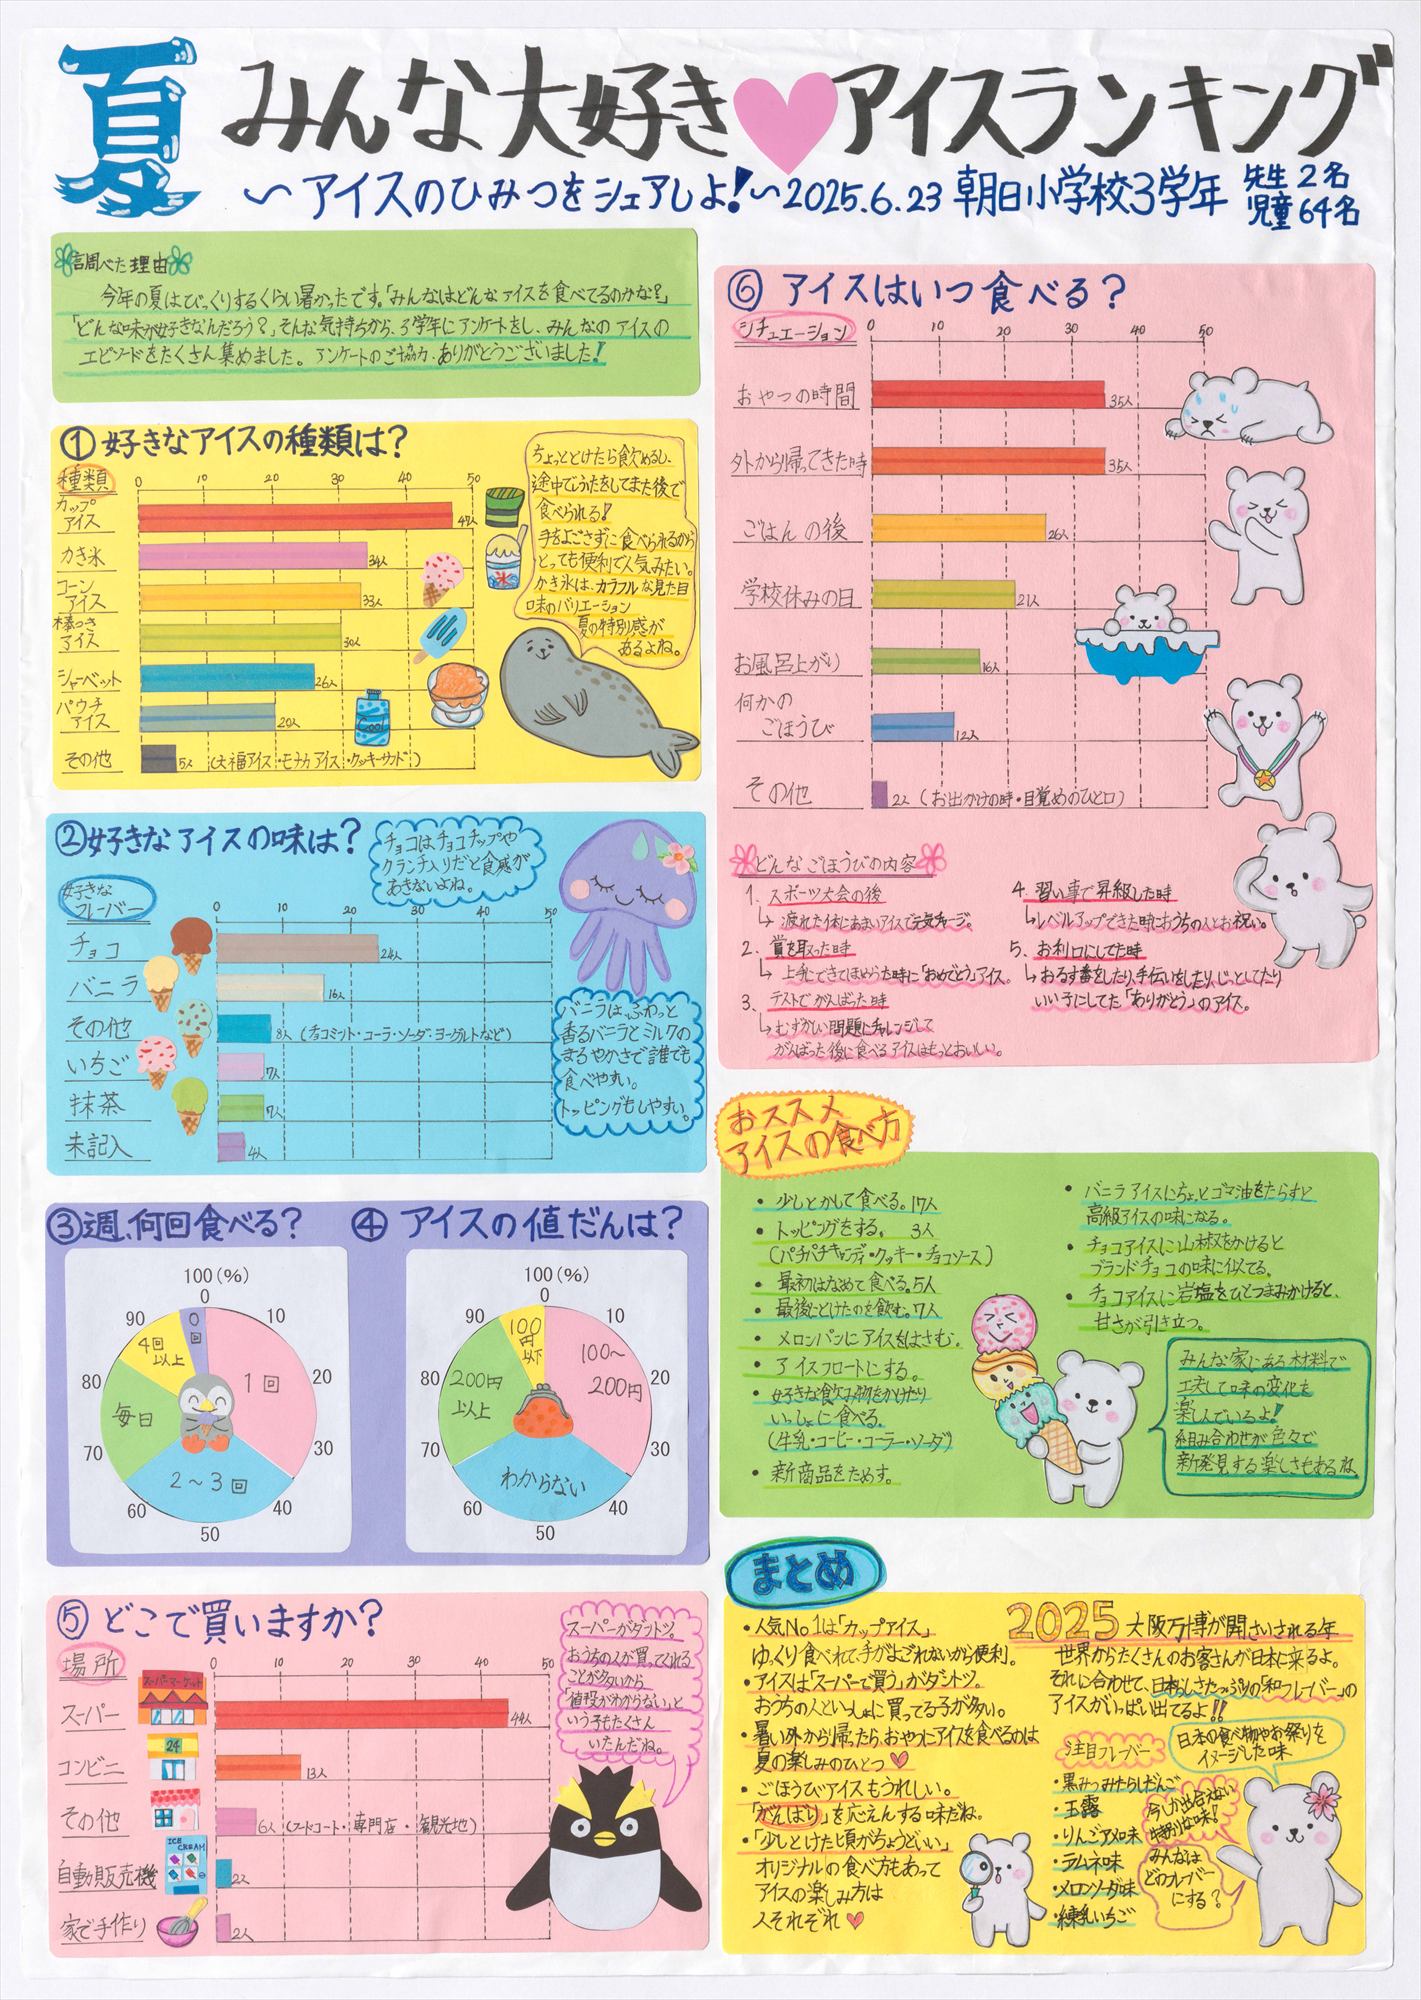 夏 みんな大好き♥アイスランキング
〜アイスのひみつをシェアしよ!〜2025.6.23 朝日小学校3学年 先生2名 児童64名
調べた理由
今年の夏はびっくりするくらい暑かったです。「みんなはどんなアイスを食べてるのかな?」
「どんな味が好きなんだろう?」そんな気持ちから、3学年にアンケートをし、みんなのアイスの
エピソードをたくさん集めました。アンケートのご協力、ありがとうございました!
①好きなアイスの種類は?
種類
0 10 20 30 40 50
カップアイス 47人
かき氷 34人
コーンアイス 33人
棒つきアイス 30人
シャーベット 26人
パウチアイス 20人
その他 5人 (大福アイス・モナカアイス・クッキーサンド)
Cool
氷
ちょっととけたら飲めるし、
途中でふたをしてまた後で
食べられる!
手をよごさずに食べられるから
とっても便利で人気みたい。
かき氷は、カラフルな見た目
味のバリエーション
夏の特別感が
あるよね。
②好きなアイスの味は?
チョコはチョコチップや
クランチ入りだと食感が
あきないよね。
好きなフレーバー
0 10 20 30 40 50
チョコ 24人
バニラ 16人
その他 8人 (チョコミント・コーラ・ソーダ・ヨーグルトなど)
いちご 7人
抹茶 7人
未記入 4人
バニラは、ふわっと
香るバニラとミルクの
まろやかさで誰でも
食べやすい。
トッピングもしやすい。
③週、何回食べる?
100(%)
0
10
20
30
40
50
60
70
80
90
1回
2〜3回
毎日
4回以上
0回
④アイスの値だんは?
100(%)
0
10
20
30
40
50
60
70
80
90
100〜200円
わからない
200円以上
100円以下
⑤どこで買いますか?
場所
0 10 20 30 40 50
スーパーマーケット
スーパー 44人
24
コンビニ 13人
その他 6人 (フードコート・専門店・観光地)
ICE CREAM
自動販売機 2人
家で手作り 2人
スーパーがダントツ。
おうちの人が買ってくれる
ことが多いから
「値段がわからない」と
いう子もたくさん
いたんだね。
⑥アイスはいつ食べる?
シチュエーション
0 10 20 30 40 50
おやつの時間 35人
外から帰ってきた時 35人
ごはんの後 26人
学校休みの日 21人
お風呂上がり 16人
何かのごほうび 12人
その他 2人 (お出かけの時・目覚めのひと口)
どんなごほうびの内容
1. スポーツ大会の後
↳疲れた体にあまいアイスで元気チャージ。
2. 賞を取った時
↳上手にできてほめられた時に「おめでとう」アイス。
3. テストでがんばった時
↳むずかしい問題にチャレンジして
がんばった後に食べるアイスはもっとおいしい。
4. 習い事で昇級した時
↳レベルアップできた時におうちの人とお祝い。
5. お利口にしてた時
↳おるす番をしたり、手伝いをしたり、じっとしてたり
いい子にしてた「ありがとう」のアイス。
おススメ
アイスの食べ方
• 少しとかして食べる。17人
• トッピングをする。 3人
(パチパチキャンディ・クッキー・チョコソース)
• 最初はなめて食べる。5人
• 最後にとけたのを飲む。7人
• メロンパンにアイスをはさむ。
• アイスフロートにする。
• 好きな飲み物をかけたり
いっしょに食べる。
(牛乳・コーヒー・コーラ・ソーダ)
• 新商品をためす。
• バニラアイスにちょっとゴマ油をたらすと
高級アイスの味になる。
• チョコアイスに山椒をかけると
ブランドチョコの味に似てる。
• チョコアイスに岩塩をひとつまみかけると、
甘さが引き立つ。
みんな家にある材料で
工夫して味の変化を
楽しんでいるよ!
組み合わせが色々で
新発見する楽しさもあるね。
まとめ
• 人気No.1は「カップアイス」
ゆっくり食べれて、手がよごれないから便利。
• アイスは「スーパーで買う」がダントツ。
おうちの人といっしょに買ってる子が多い。
• 暑い外から帰ったら、おやつにアイスを食べるのは
夏の楽しみのひとつ♥
• ごほうびアイスもうれしい。
「がんばり」を応えんする味だね。
• 「少しとけた頃がちょうどいい」
オリジナルの食べ方もあって
アイスの楽しみ方は
人それぞれ♥
2025 大阪万博が開さいされる年
世界からたくさんのお客さんが日本に来るよ。
それに合わせて、日本らしさたっぷりの「和フレーバー」の
アイスがいっぱい出てるよ!!
注目フレーバー
日本の食べ物やお祭りを
イメージした味
• 黒みつみたらしだんご
• 玉露
• りんごアメ味
• ラムネ味
• メロンソーダ味
• 練乳いちご
今しか出合えない
特別な味!
みんなは
どのフレーバー
にする?